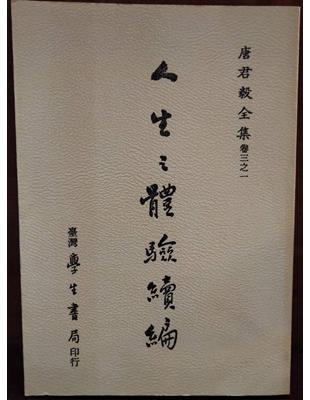 唐君毅全集 卷三之一
人生之體驗續編
臺灣 學生書局 印行